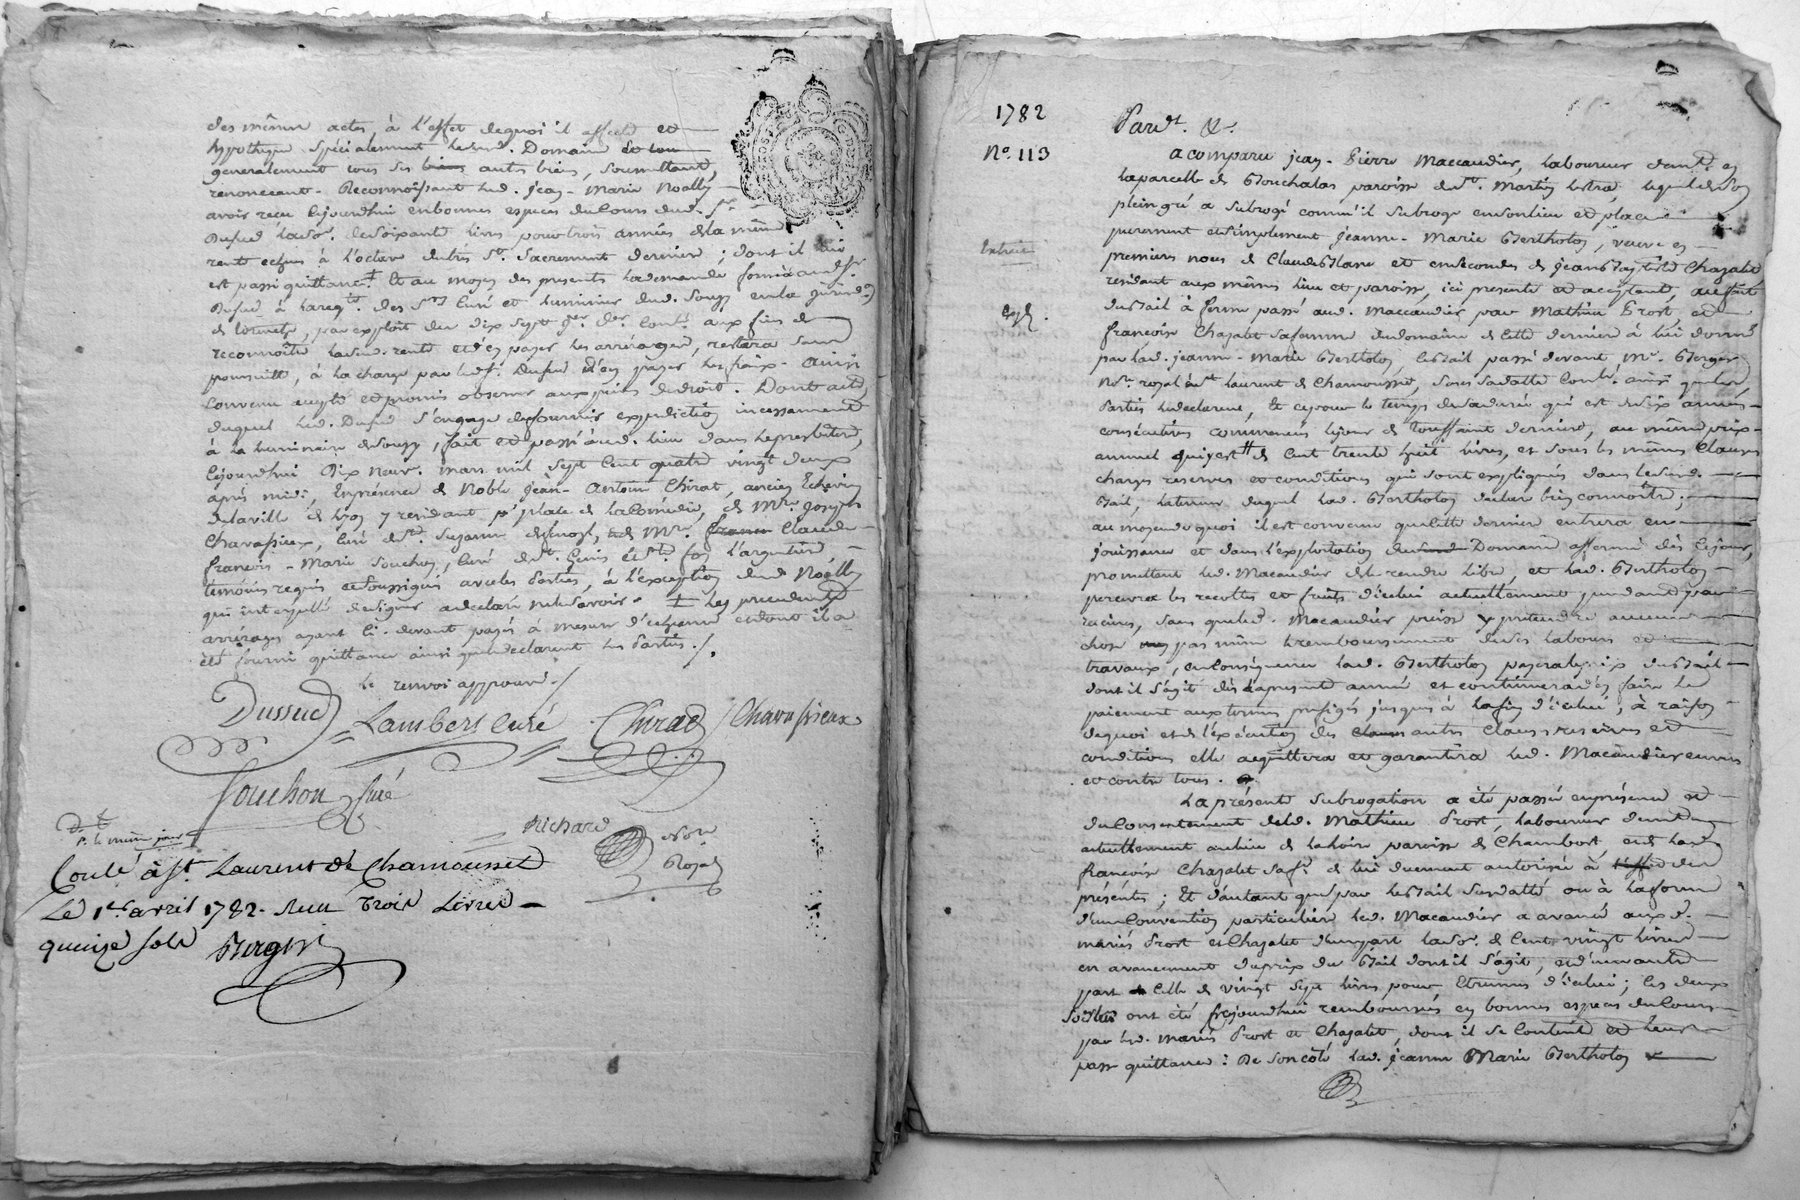 des mêmes actes, à l'effet dequoi il affecte et
hypotheque spécialement led. Domaine et tou
generalement tous ses biens autres biens, soumettant,
renonceant. Reconnoissant led. jean-Marie Noally
avoir reçu cejourdhui en bonnes especes du Cours dud. Sr.
Dufud la so. de soixante livres pour trois années de la même
rente echues à l'octave du très St. Sacrement dernier; dont il
est passé quittance ‡. Et au moyen des presents la demande formée aud. Sr.
Dufud à la reqte. des Srs. Curé et luminier dud. Souzy en la jurisdon.
par exploit du dix sept aux fins de
reconnoitre lad. rente et d'en payer les arrérages, restera sans
poursuitte, à la charge par led. Sr. Dufud d'en payer les fraix. Ainsi
Convenu accepté et promis observer aux peines de droit. Dont acte
duquel led. Dufud s'engage de fournir expedition incessamment
à la luminaire de Souzy, fait et passé aud. lieu dans le presbitere,
cejourdhui Dix neuf mars mil sept Cent quatre vingt deux
après midi, En présence de Noble Jean-Antoine Chirat, ancien Echevin
de la ville de lyon y residant place de la Comédie, de Mre. joseph
Chavassieux, Curé de Ste. Suzanne et de Mre. Claude
françois-Marie Souchon, Curé de St. Genis l'argentiere,
temoins requis et soussignés avec les Parties, à l'exception dud. Noally
qui interpellé de signer a declaré ne le savoir. ‡ les precedents
arrérages ayant ci-devant payés à mesure d'echeance et dont il a
été fourni quittance ainsi que le declarent les Parties./.
le renvoi approuvé./
Dussud Lambert Curé Chirat Chavassieux
Souchon Curé
Richard
Notre
Royal
Dt.
le même jour
Conlé à St. Laurent de Chamousset
Le 1er. avril 1782. Reçu Trois Livres
quinze sols Berger
1782
No. 113
Extrait
Expé.
Pardt. &.
a comparu jean-Pierre Maccaudier, laboureur demt. en
la parcelle de Bouchalas paroisse de St. Martin Lestra, lequel de son
plein gré a Subrogé comm'il Subroge en son lieu et place
purement et simplement jeanne-Marie Bertholon, veuve en
premiers noces de Claude Blanc et en secondes de jean Baptiste Chazalet
résidant aux mêmes lieu et paroisse, ici presente et acceptant,
du Bail à ferme passé aud. Maccaudier par Mathieu Prost, et
françoise Chazalet sa femme du domaine de cette derniere à lui donné
par lad. jeanne-Marie Bertholon, led. Bail passé devant Me. Berger
Nore. royal à St. Laurent de Chamousset, sous sa datte Conlé. ainsi que les
Parties le declarent, Et ce pour le temps de sa durée qui est de six années
consécutives commencées le jour de Toussaint derniere, au même prix
annuel qui y est de Cent trente huit livres, et sous les mêmes Clauses
charges reserves et conditions qui sont expliquées dans led.
Bail, la teneur duquel lad. Bertholon declare bien connoitre;
au moyen de quoi il est convenu que cette derniere entrera en
jouissance et dans l'exploitation dud. Domaine affermé dès ce jour,
promettant led. Macaudier de le rendre libre, et lad. Bertholon
percevra les recoltes et fruits d'icelui actuellement pendants par
racines, sans que led. Macaudier puisse y prétendre aucune
chose pas même le remboursement de ses labours et
travaux, en Conséquence lad. Bertholon payera le prix du Bail
dont il s'agit dès la presente année et continuera d'en faire le
paiement aux termes prefigés jusques à la fin d'icelui, à raison
dequoi et de l'exécution des Clauses autres Clauses reserves et
conditions elle acquittera et garantira led. Macaudier envers
et contre tous.
La présente Subrogation a été passée en présence et
du Consentement dud. Mathieu Prost, laboureur demt.
actuellement au lieu de la paroisse de Chambost, et de lad.
françoise Chazalet sa fe. de lui duement autorisée à l'effet des
présentes; Et d'autant que par le Bail susdatté ou à la forme
d'une Convention particuliere led. Macaudier a avancé aux d.
mariés Prost et Chazalet d'une part la so. de Cent vingt livres
en avancement du prix du Bail dont il s'agit, et d'une autre
part celle de vingt sept livres pour Etrennes d'icelui; les deux
sommes ont été cejourdhui remboursées en bonnes especes du Cours
par led. mariés Prost et Chazalet, dont il se Contente et leur
passe quittance: De son côté lad. jeanne Marie Bertholon